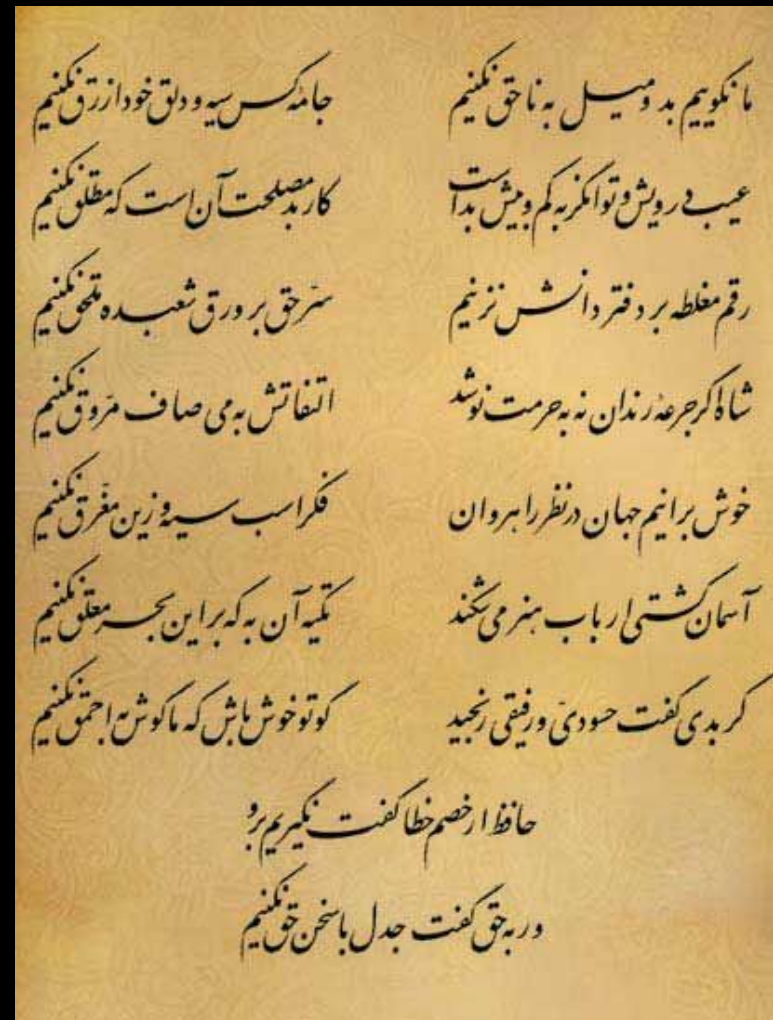 ما نگوییم بد و میل به ناحق نکنیم جامهٔ کس سیه و دلق خود ازرق نکنیم
عیب درویش و توانگر به کم و بیش بد است کار بد مصلحت آن است که مطلق نکنیم
رقم مغلطه بر دفتر دانش نزنیم سرّ حق بر ورق شعبده ملحق نکنیم
شاه اگر جرعهٔ رندان نه به حرمت نوشد التفاتش به می صاف مروّق نکنیم
خوش برانیم جهان در نظر راهروان فکر اسب سیه و زین مغرّق نکنیم
آسمان کشتی ارباب هنر می‌شکند تکیه آن به که بر این بحر معلق نکنیم
گر بدی گفت حسودیّ و رفیقی رنجید گو تو خوش باش که ما گوش به احمق نکنیم
حافظ ار خصم خطا گفت نگیریم برو
ور به حق گفت جدل با سخن حق نکنیم